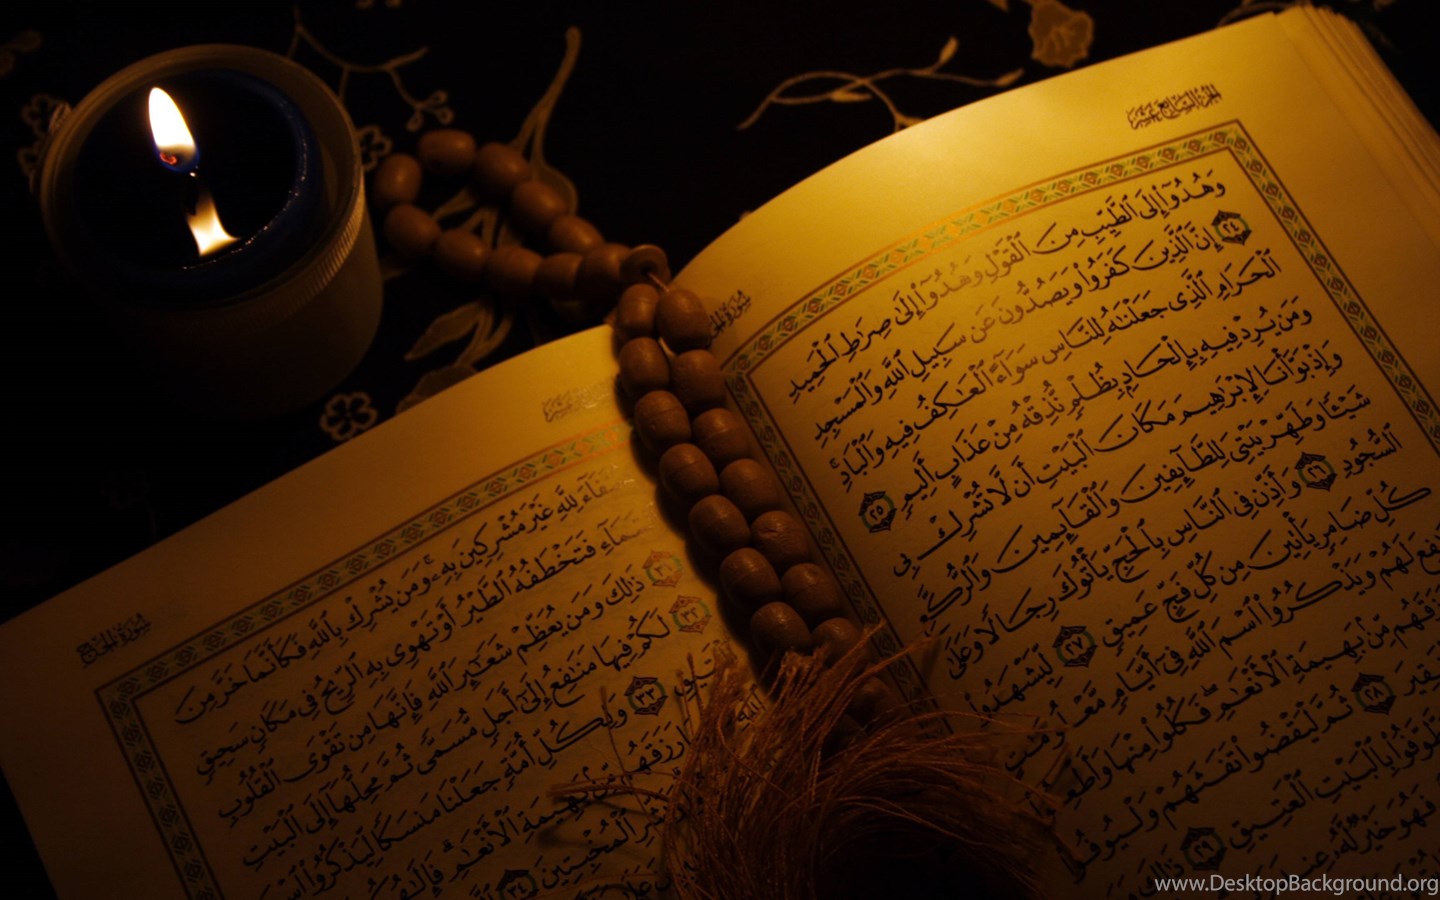 الجزء السابع عشر
وَهُدُوٓا۟ إِلَى ٱلطَّيِّبِ مِنَ ٱلْقَوْلِ وَهُدُوٓا۟ إِلَىٰ صِرَٰطِ ٱلْحَمِيدِ
٢٤ إِنَّ ٱلَّذِينَ كَفَرُوا۟ وَيَصُدُّونَ عَن سَبِيلِ ٱللَّهِ وَٱلْمَسْجِدِ
ٱلْحَرَامِ ٱلَّذِى جَعَلْنَٰهُ لِلنَّاسِ سَوَآءً ٱلْعَٰكِفُ فِيهِ وَٱلْبَادِ ۚ
وَمَن يُرِدْ فِيهِ بِإِلْحَادٍۭ بِظُلْمٍ نُّذِقْهُ مِنْ عَذَابٍ أَلِيمٍ ٢٥
وَإِذْ بَوَّأْنَا لِإِبْرَٰهِيمَ مَكَانَ ٱلْبَيْتِ أَن لَّا تُشْرِكْ بِى
شَيْـًٔا وَطَهِّرْ بَيْتِىَ لِلطَّآئِفِينَ وَٱلْقَآئِمِينَ وَٱلرُّكَّعِ
ٱلسُّجُودِ ٢٦ وَأَذِّن فِى ٱلنَّاسِ بِٱلْحَجِّ يَأْتُوكَ رِجَالًا وَعَلَىٰ
كُلِّ ضَامِرٍ يَأْتِينَ مِن كُلِّ فَجٍّ عَمِيقٍ ٢٧ لِّيَشْهَدُوا۟
لَهُمْ وَيَذْكُرُوا۟ ٱسْمَ ٱللَّهِ فِىٓ أَيَّامٍ مَّعْلُومَٰتٍ
مِّنۢ بَهِيمَةِ ٱلْأَنْعَٰمِ ۖ فَكُلُوا۟ مِنْهَا
٢٨ ثُمَّ لْيَقْضُوا۟ تَفَثَهُمْ وَلْيُوفُوا۟
بِٱلْبَيْتِ ٱلْعَتِيقِ ٢٩ ذَٰلِكَ
فَهُوَ خَيْرٌ لَّهُۥ عِندَ
سورة الحج
لِلَّهِ غَيْرَ مُشْرِكِينَ بِهِۦ ۚ وَمَن يُشْرِكْ بِٱللَّهِ فَكَأَنَّمَا خَرَّ مِنَ
فَتَخْطَفُهُ ٱلطَّيْرُ أَوْ تَهْوِى بِهِ ٱلرِّيحُ فِى مَكَانٍ سَحِيقٍ
٣١ ذَٰلِكَ وَمَن يُعَظِّمْ شَعَٰٓئِرَ ٱللَّهِ فَإِنَّهَا مِن تَقْوَى ٱلْقُلُوبِ
٣٢ لَكُمْ فِيهَا مَنَٰفِعُ إِلَىٰٓ أَجَلٍ مُّسَمًّى ثُمَّ مَحِلُّهَآ إِلَى ٱلْبَيْتِ
٣٣ وَلِكُلِّ أُمَّةٍ جَعَلْنَا مَنسَكًا لِّيَذْكُرُوا۟ ٱسْمَ
ٱللَّهِ رَزَقَهُم مِّنۢ بَهِيمَةِ ٱلْأَنْعَٰمِ ۗ
ٱلْمُخْبِتِينَ ٣٤
www.DesktopBackground.org